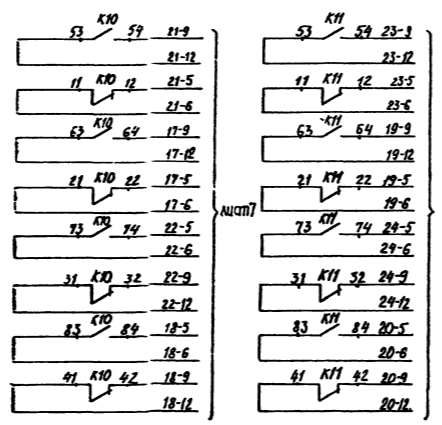 53 К10 54 21-9
21-12
11 К10 12 21-5
21-6
63 К10 64 17-9
17-12
21 К10 22 17-5
17-6
73 К10 74 22-5
22-6
31 К10 32 22-9
22-12
83 К10 84 18-5
18-6
41 К10 42 18-9
18-12
лист7
53 К11 54 23-9
23-12
11 К11 12 23-5
23-6
63 К11 64 19-9
19-12
21 К11 22 19-5
19-6
73 К11 74 24-5
24-6
31 К11 32 24-9
24-12
83 К11 84 20-5
20-6
41 К11 42 20-9
20-12